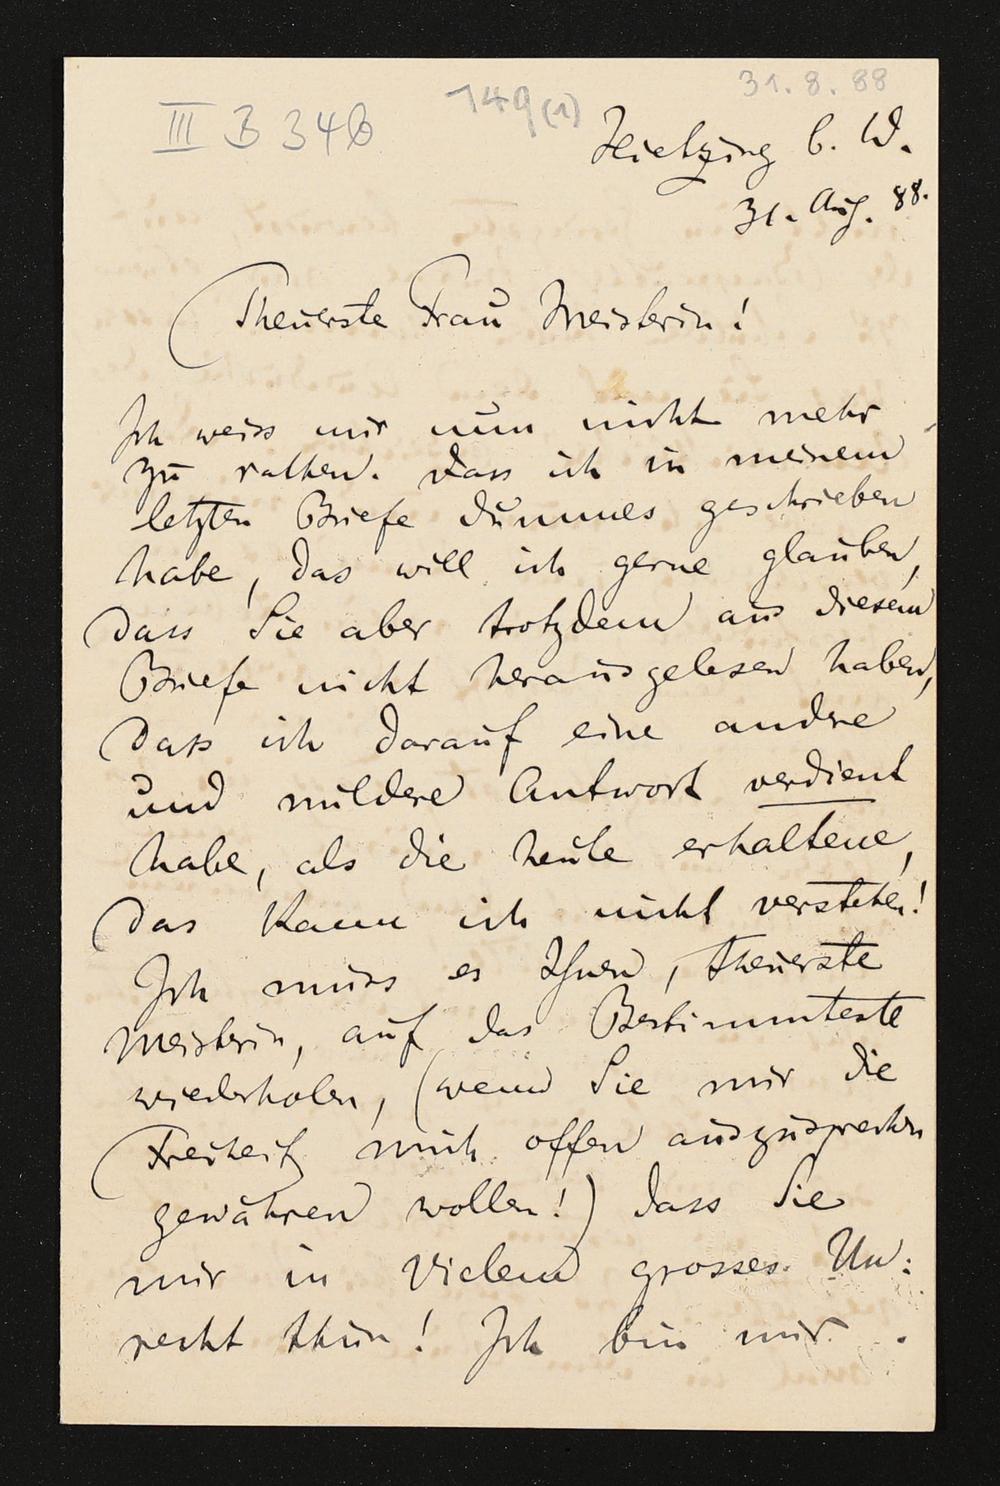 31.8.88
149(1)
III B 346
Hietzing b. W.
31. Aug. 88.
Theuerste Frau Meisterin!
Ich weiss mir nun nicht mehr
zu rathen. Dass ich in meinem
letzten Briefe dummes geschrieben
habe, das will ich gerne glauben,
dass Sie aber trotzdem aus diesem
Briefe nicht herausgelesen haben,
dass ich darauf eine andre
und mildere Antwort verdient
habe, als die heute erhaltene,
das kann ich nicht verstehen!
Ich muss es Ihnen, theuerste
Meisterin, auf das Bestimmteste
wiederholen, (wenn Sie mir die
Freiheit mich offen auszusprechen
gewähren wollen!) dass Sie
mir in Vielem grosses Un:
recht thun! Ich bin mir